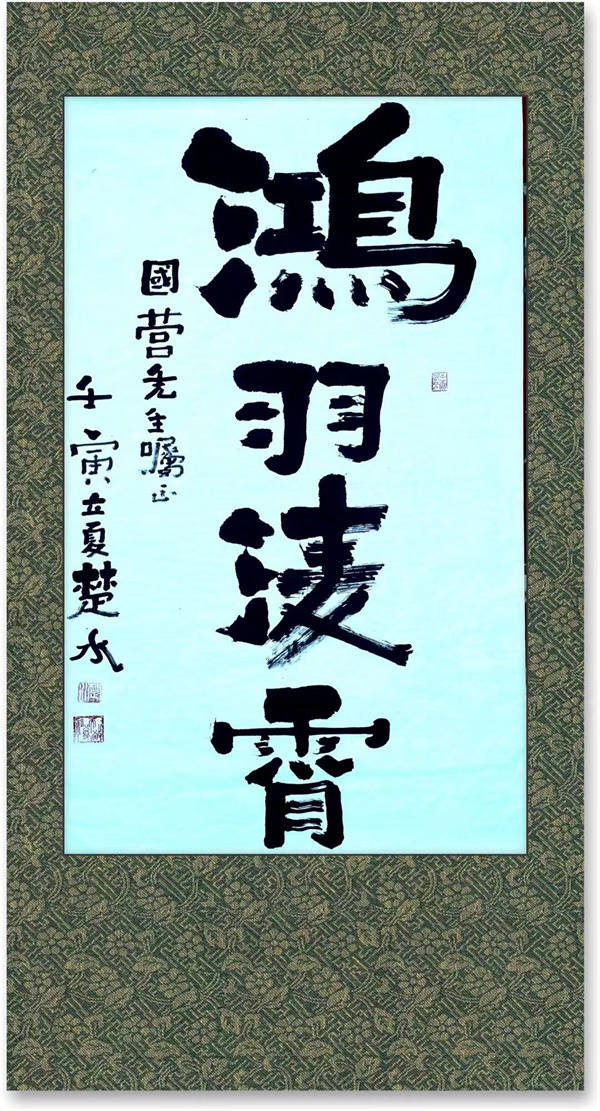 鴻羽淩霄
國营先生囑正
壬寅立夏楚水